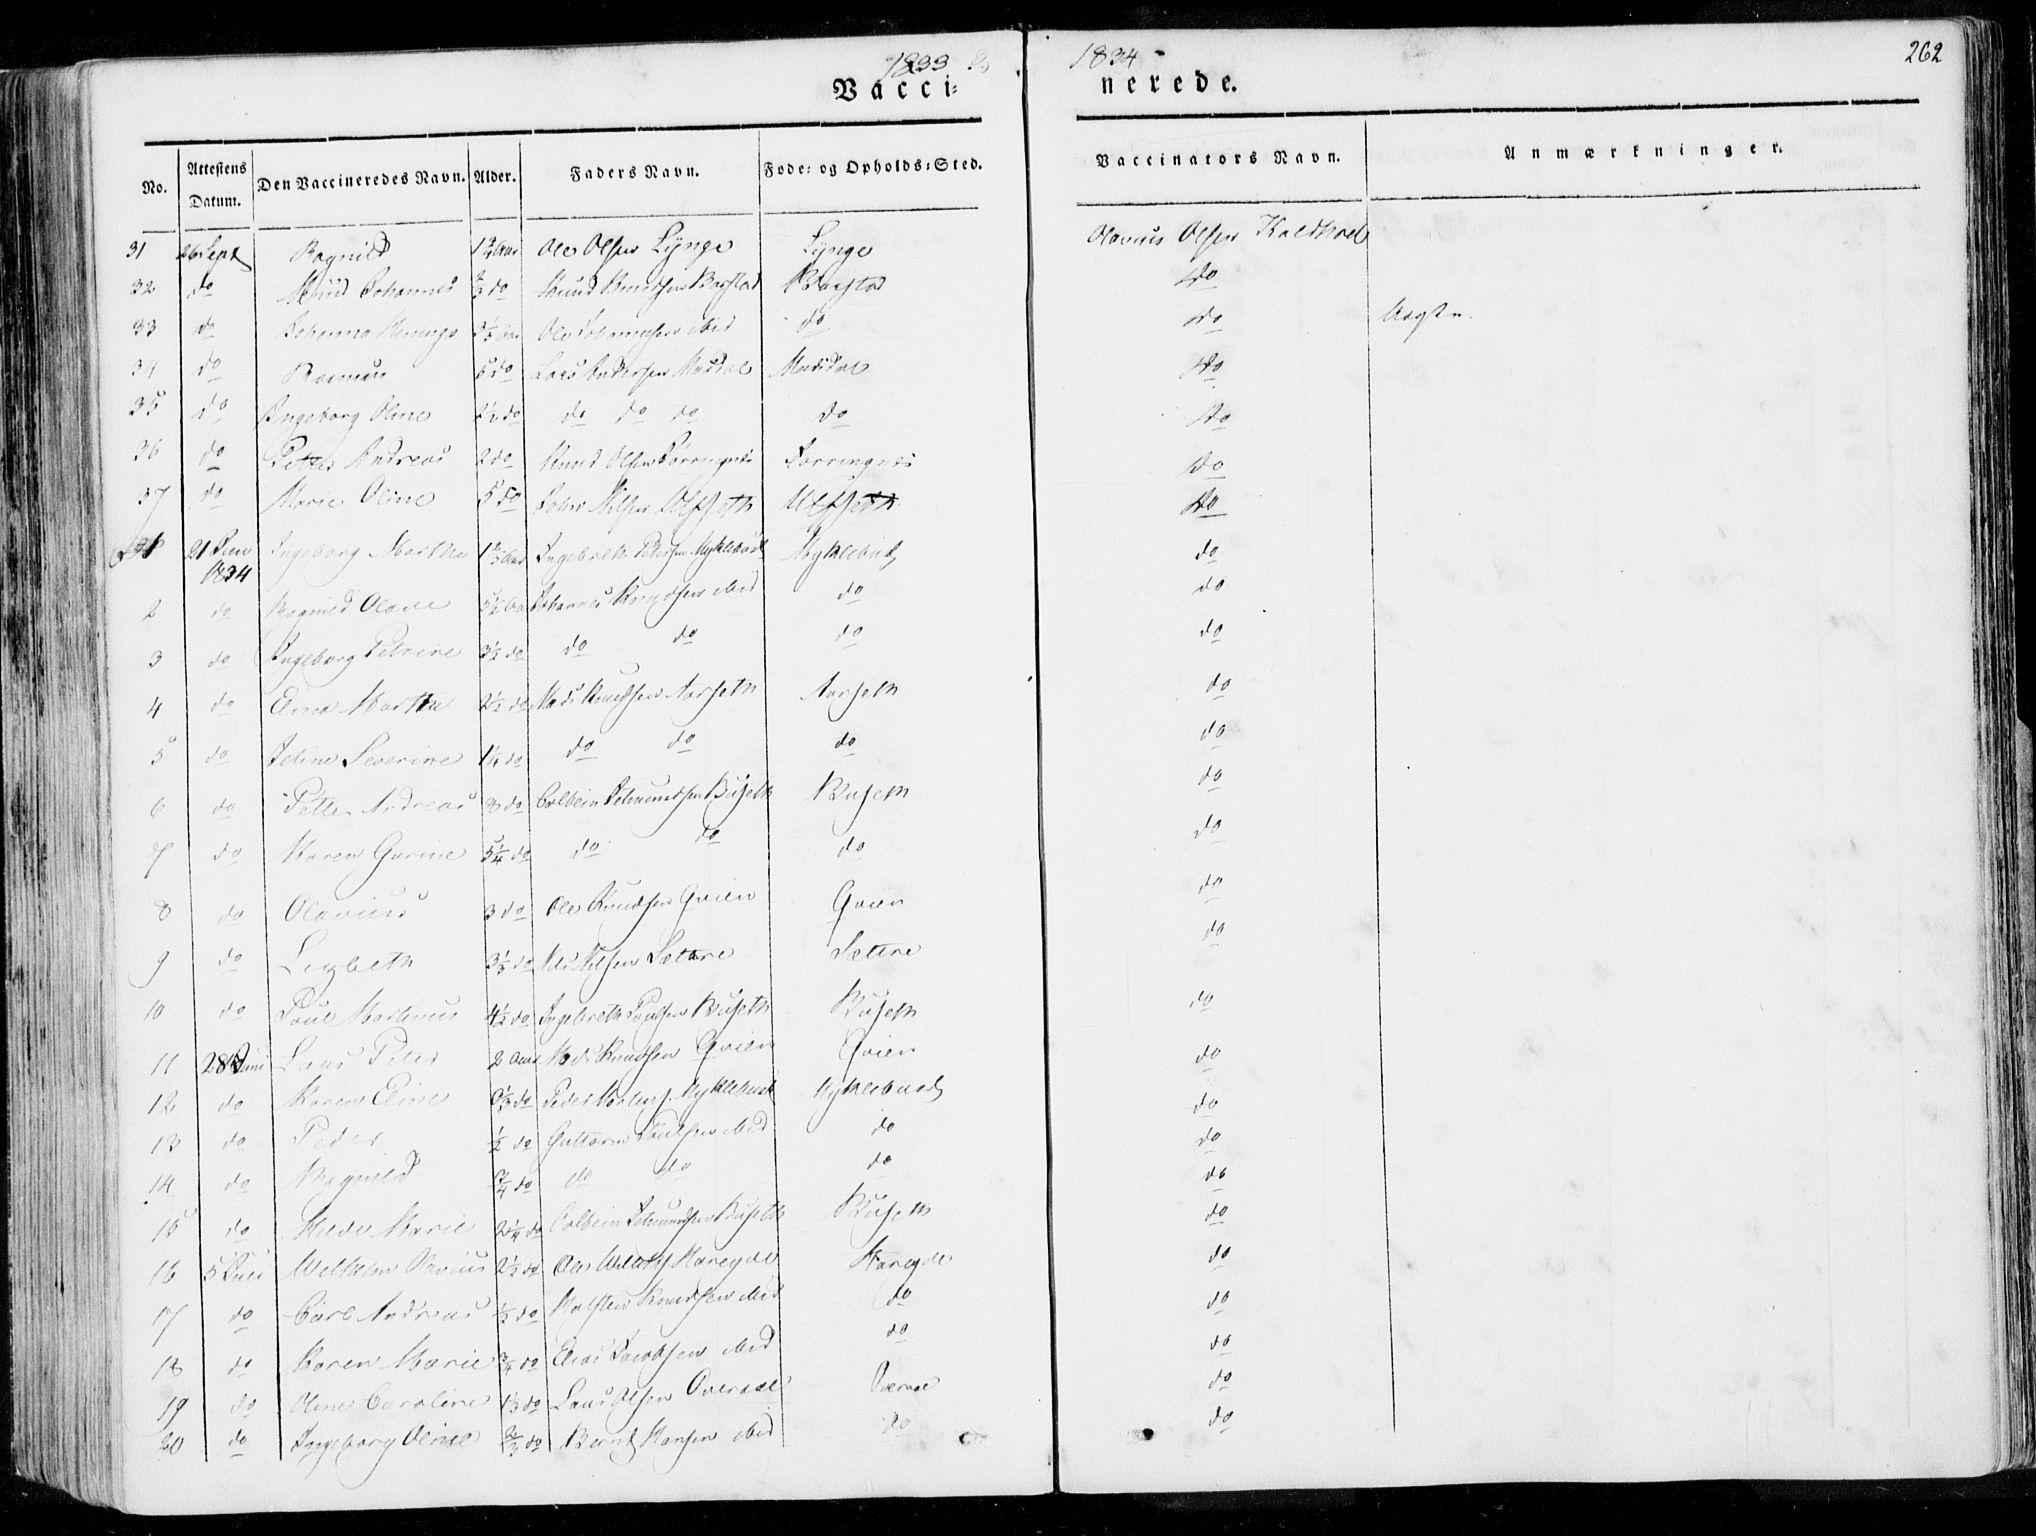 1833 1834 262
Vacci= nerede.
No. Attestens Datum. Den Vaccineredes Navn. Alder. Faders Navn. Føde= og Opholds=Sted. Vaccinators Navn. Anmærkninger.
31 26 Sept Ragnild 1¾ Aar Ole Olsen Lÿnge Lÿnge Olavius Olsen Kaldhol
32 do Knud Johannes do Knud Knudsen do
33 do Johanne Ole Johannesen ibid do do
34 do Rasmus 5 do Lars Andersen Masdal Masdal do
35 do Ingeborg Oline 2½ do do do do do do
36 do Petter Andreas 2 do Knud Olsen do
37 do Marie Oline 5 do Nilsen Ulfseth Ulfseth do
1 21 Juni 1834 Ingeborg Marthe Aar Ingebreth Pedersen Myklebust Myklebust do
2 do Ragnild Olave 5½ Aar Johannes Knudsen ibid do do
3 do Ingeborg Petrine 3½ do do do do do
4 do Marthe 2½ do Mads Knudsen Aarseth Aarseth do
5 do Severine 1¼ do do do do do
6 do Petter Andreas 8 do Colbein Buseth Buseth do
7 do Karen Gurine 5¼ do do do do do
8 do Olavius 3 do Ole Knudsen Qvien Qvien do
9 do Lizbeth 3⅓ do Nils Nilsen Sætre Sætre do
10 do Paul Martinus 4½ do Ingebreth Paulsen Buseth Buseth do
11 28 Juni Lars Peter 2 Aar Mads Knudsen Qvien Qvien do
12 do Karen Eline do Peder Myklebust Myklebust do
13 do Peder ½ do Guttorm Paulsen ibid do do
14 do Ragnild ¾ do do do do do
15 do Marie 2¼ do Colbein Buseth Buseth do
16 5 Juli Wilhelm 2½ do Ole Hareyde Hareyde do
17 do Carl Andreas ½ do Knudsen ibid do do
18 do Karen Marie ¾ do Elias Jacobsen ibid do do
19 do Oline Caroline 1⅓ do Lars Olsen Overaae Overaae do
20 do Ingeborg Oline ⅔ do Bernt Hansen ibid do do